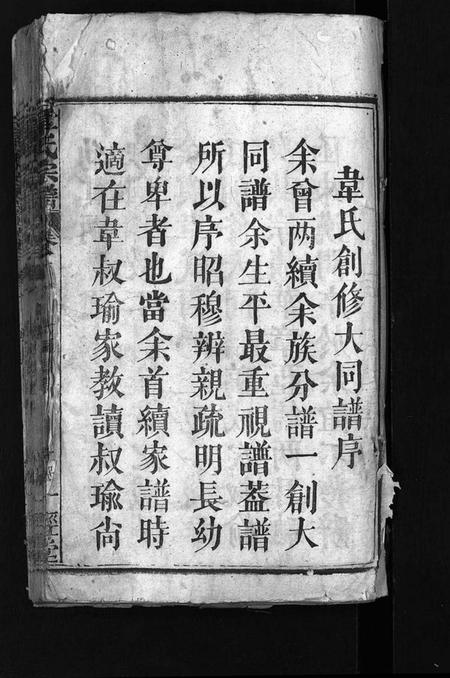 韋氏創修大同譜序
余曾两續余族分譜一創大
同譜余生平最重視譜葢譜
所以序昭穆辨親疏明長幼
尊卑者也當余首續家譜時
適在韋叔瑜家教讀叔瑜尙
韋氏宗譜 卷
一經堂